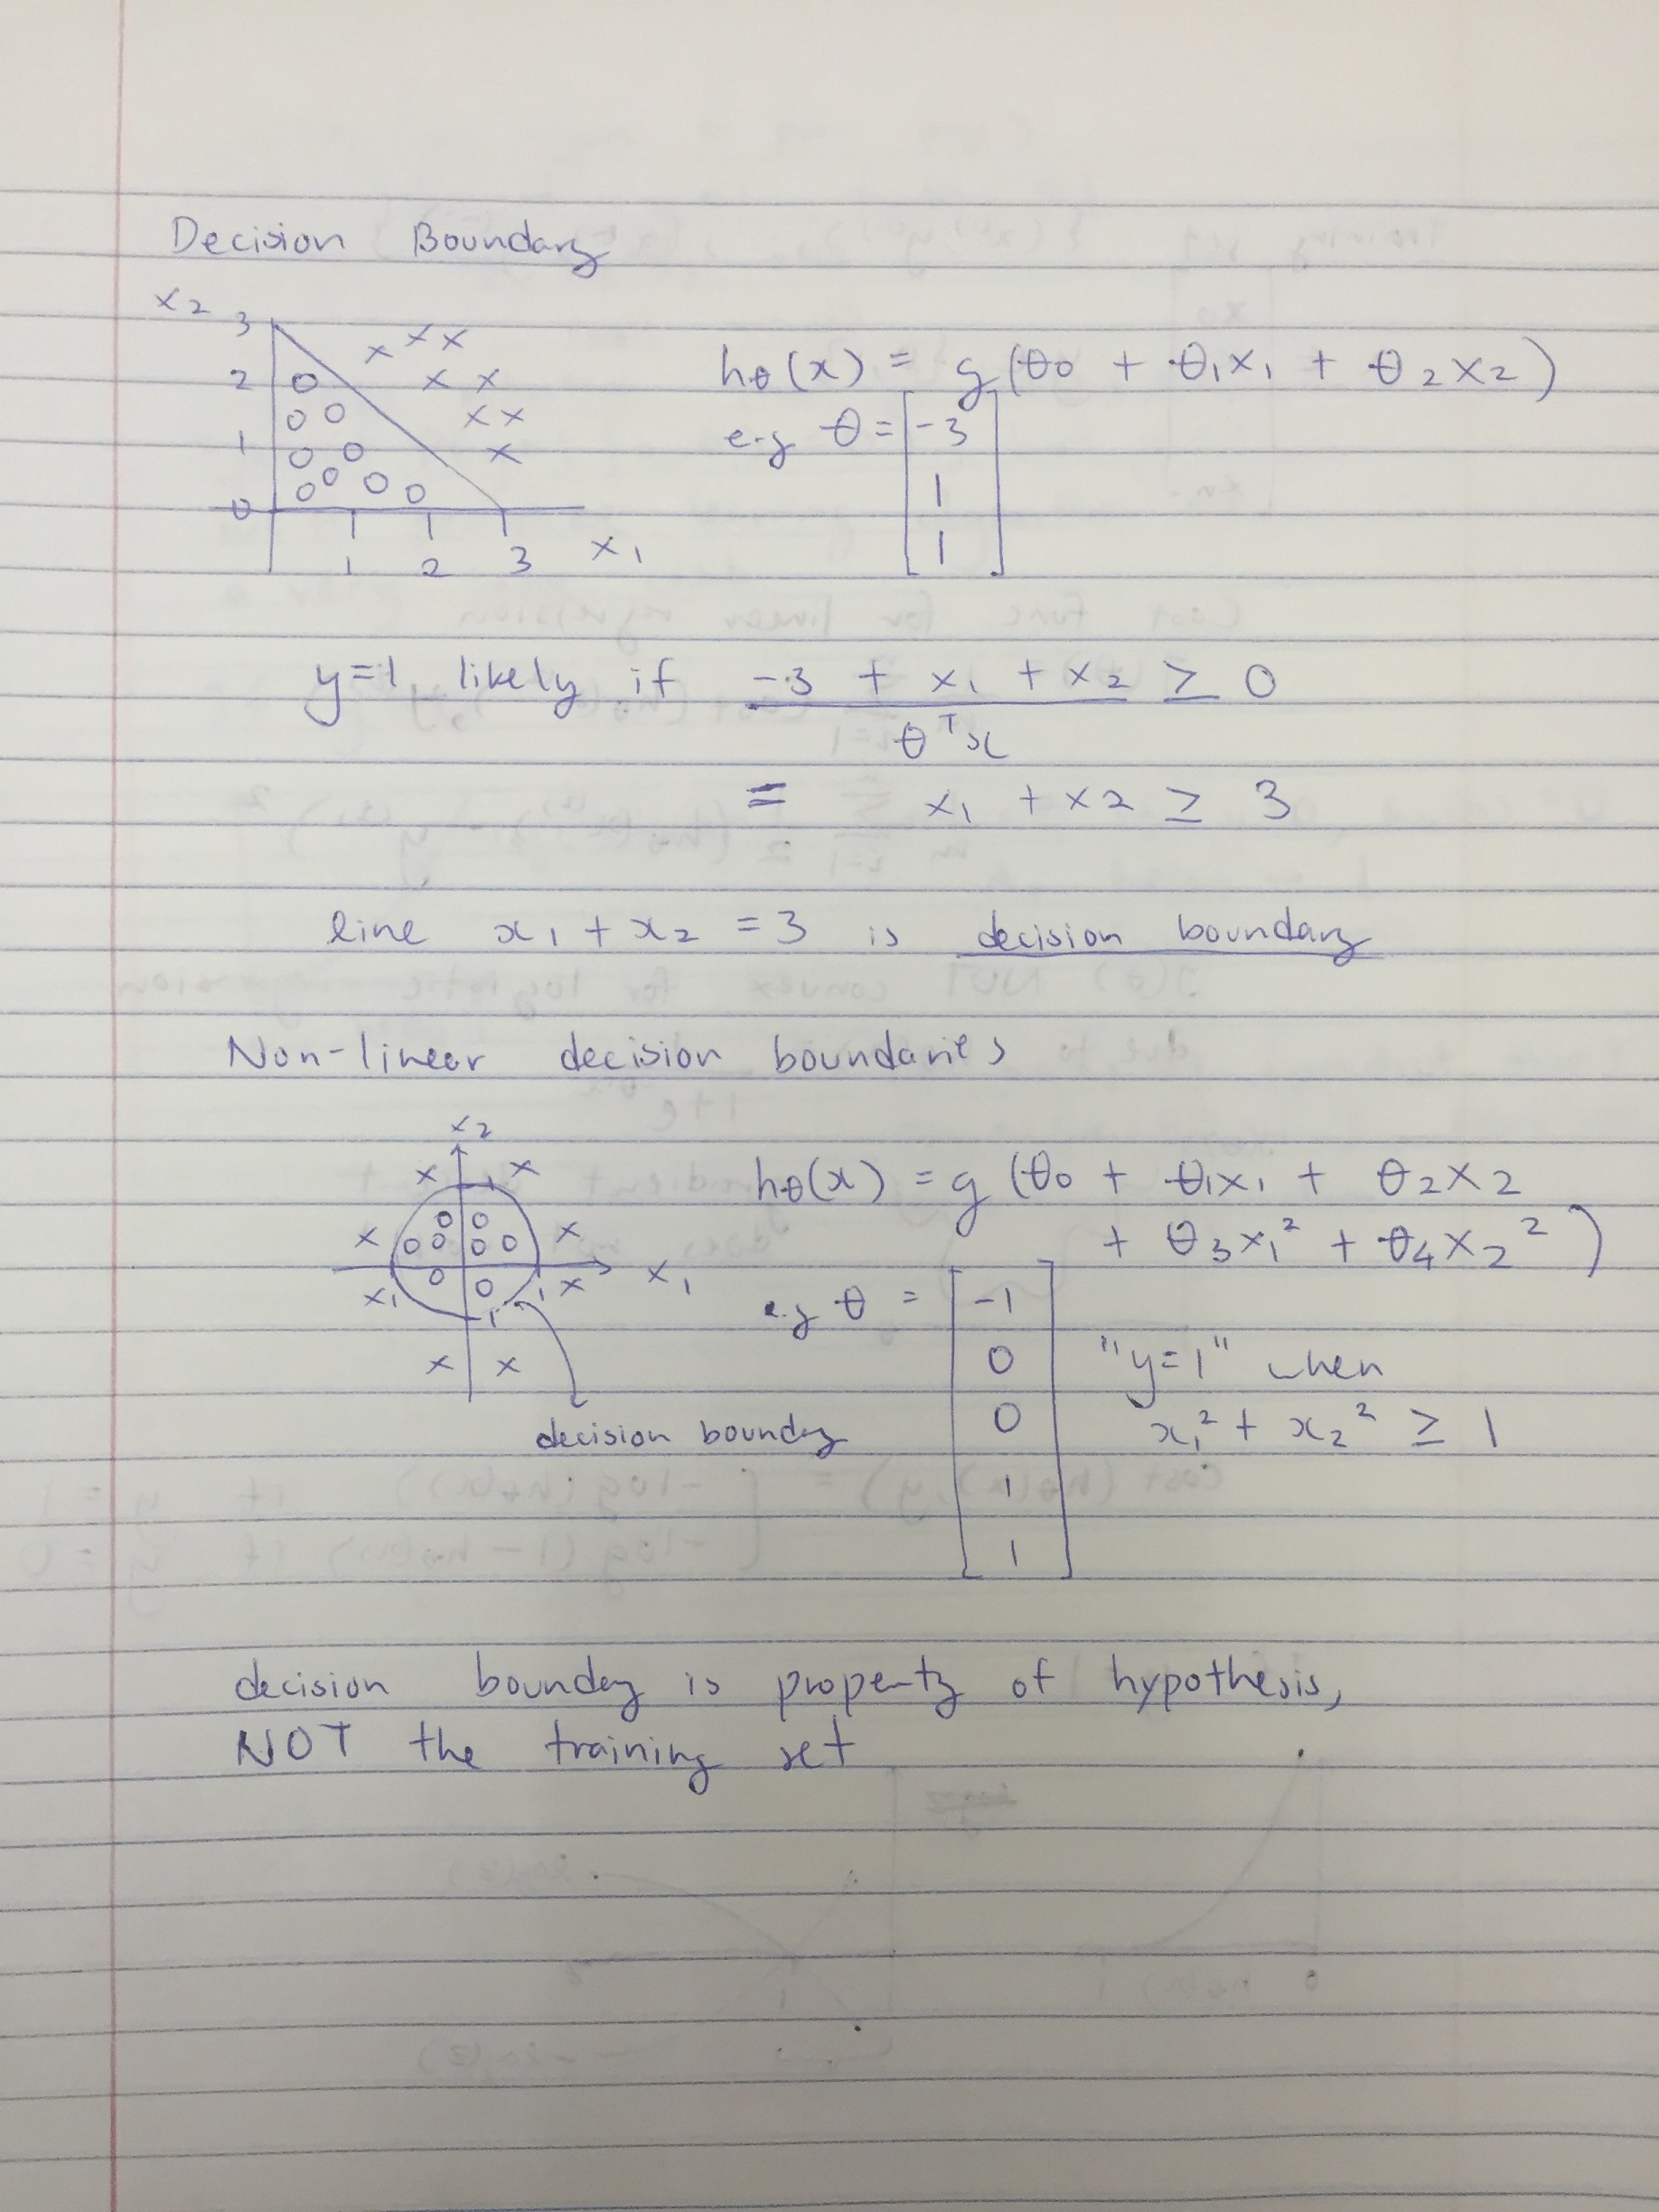 Decision Boundary
x2
3
2
1
0
1 2 3 x1
hθ(x) = g(θ0 + θ1x1 + θ2x2)
e.g θ = [-3
1
1]
y=1 likely if -3 + x1 + x2 ≥ 0
θᵀx
= x1 + x2 ≥ 3
line x1 + x2 = 3 is decision boundary
Non-linear decision boundaries
x2
x1
1
1
1
1
decision boundry
hθ(x) = g(θ0 + θ1x1 + θ2x2
+ θ3x1² + θ4x2²)
e.g θ = [-1
0
0
1
1]
"y=1" when
x1² + x2² ≥ 1
decision boundry is property of hypothesis,
NOT the training set